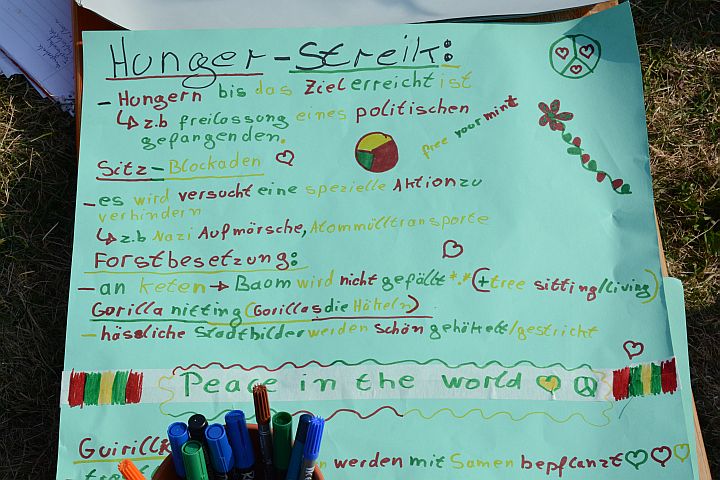 Hunger-Streik:
- Hungern bis das Ziel erreicht ist
↳ z.b freilassung eines politischen
gefangenden.
free your mint
Sitz-Blockaden
- es wird versucht eine spezielle Aktion zu
verhindern
↳ z.b Nazi Aufmärsche, Atommülltransporte
Forstbesetzung:
- an keten → Baom wird nicht gefällt *.* (+tree sitting/living)
Gorilla nitting (Gorillas die Häkeln)
- hässliche Stadtbilder werden schön gehäkelt/gestrickt
Peace in the world
werden mit Samen bepflanzt